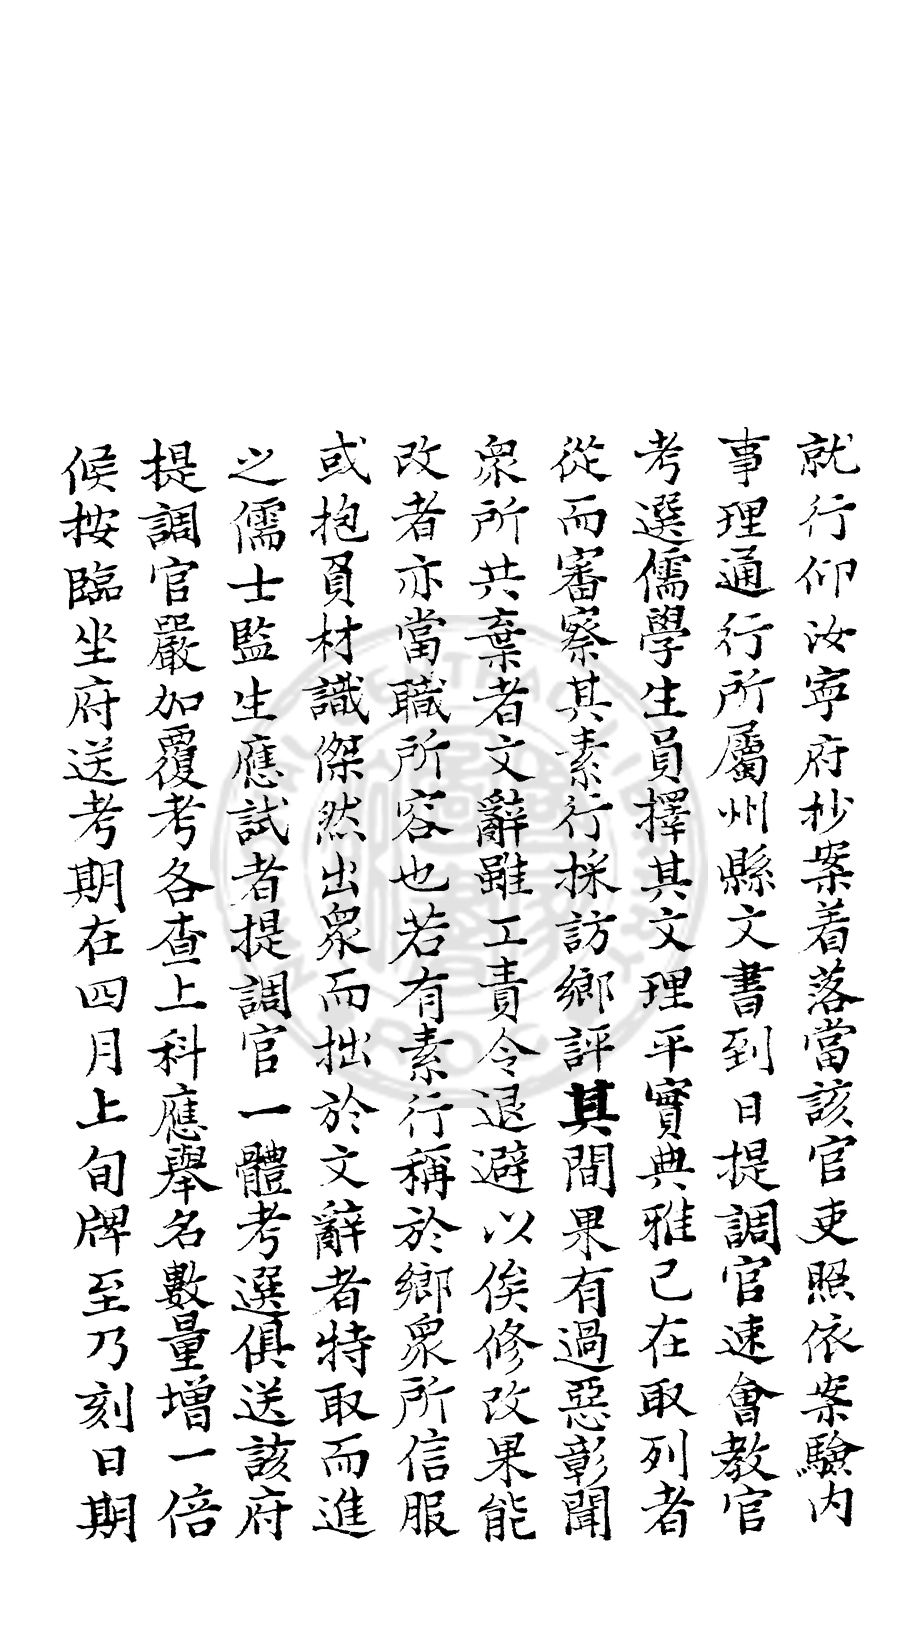 就行仰汝寧府抄案着落當該官吏照依案驗內
事理通行所屬州縣文書到日提調官速會教官
考選儒學生員擇其文理平實典雅已在取列者
從而審察其素行採訪鄉評其間果有過惡彰聞
衆所共棄者文辭雖工責令退避以俟修改果能
改者亦當職所容也若有素行稱於鄉衆所信服
或抱負材識傑然出衆而拙於文辭者特取而進
之儒士監生應試者提調官一體考選俱送該府
提調官嚴加覆考各查上科應舉名數量增一倍
候按臨坐府送考期在四月上旬牌至乃刻日期